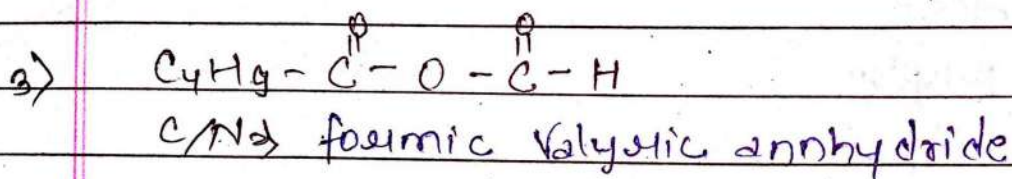 O O
3) C4H9 - C - O - C - H
C/N→ formic Valyric annhydride